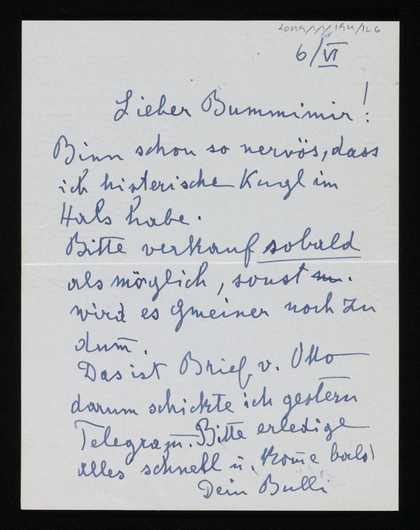 6/VI
Lieber Bummimir!
Binn schon so nervös, dass
ich histerische Kugl im
Hals habe.
Bitte verkauf sobald
als möglich, sonst
wird es Gmeiner noch zu
dum̄.
Das ist Brief v. Otto
darum schickte ich gestern
Telegram̄. Bitte erledige
alles schnell u. kom̄e bald!
Dein Bulli